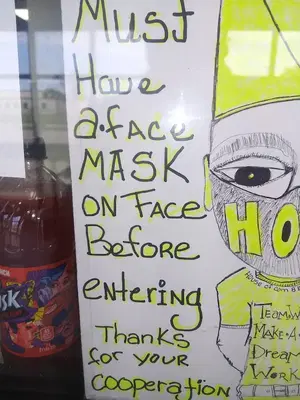 Must
Have
a face
MASK
ON FACE
Before
entering
Thanks
for YOUR
COOperatiON
HO
House of
TEAMW
MAKE-A-
Dream
WORK